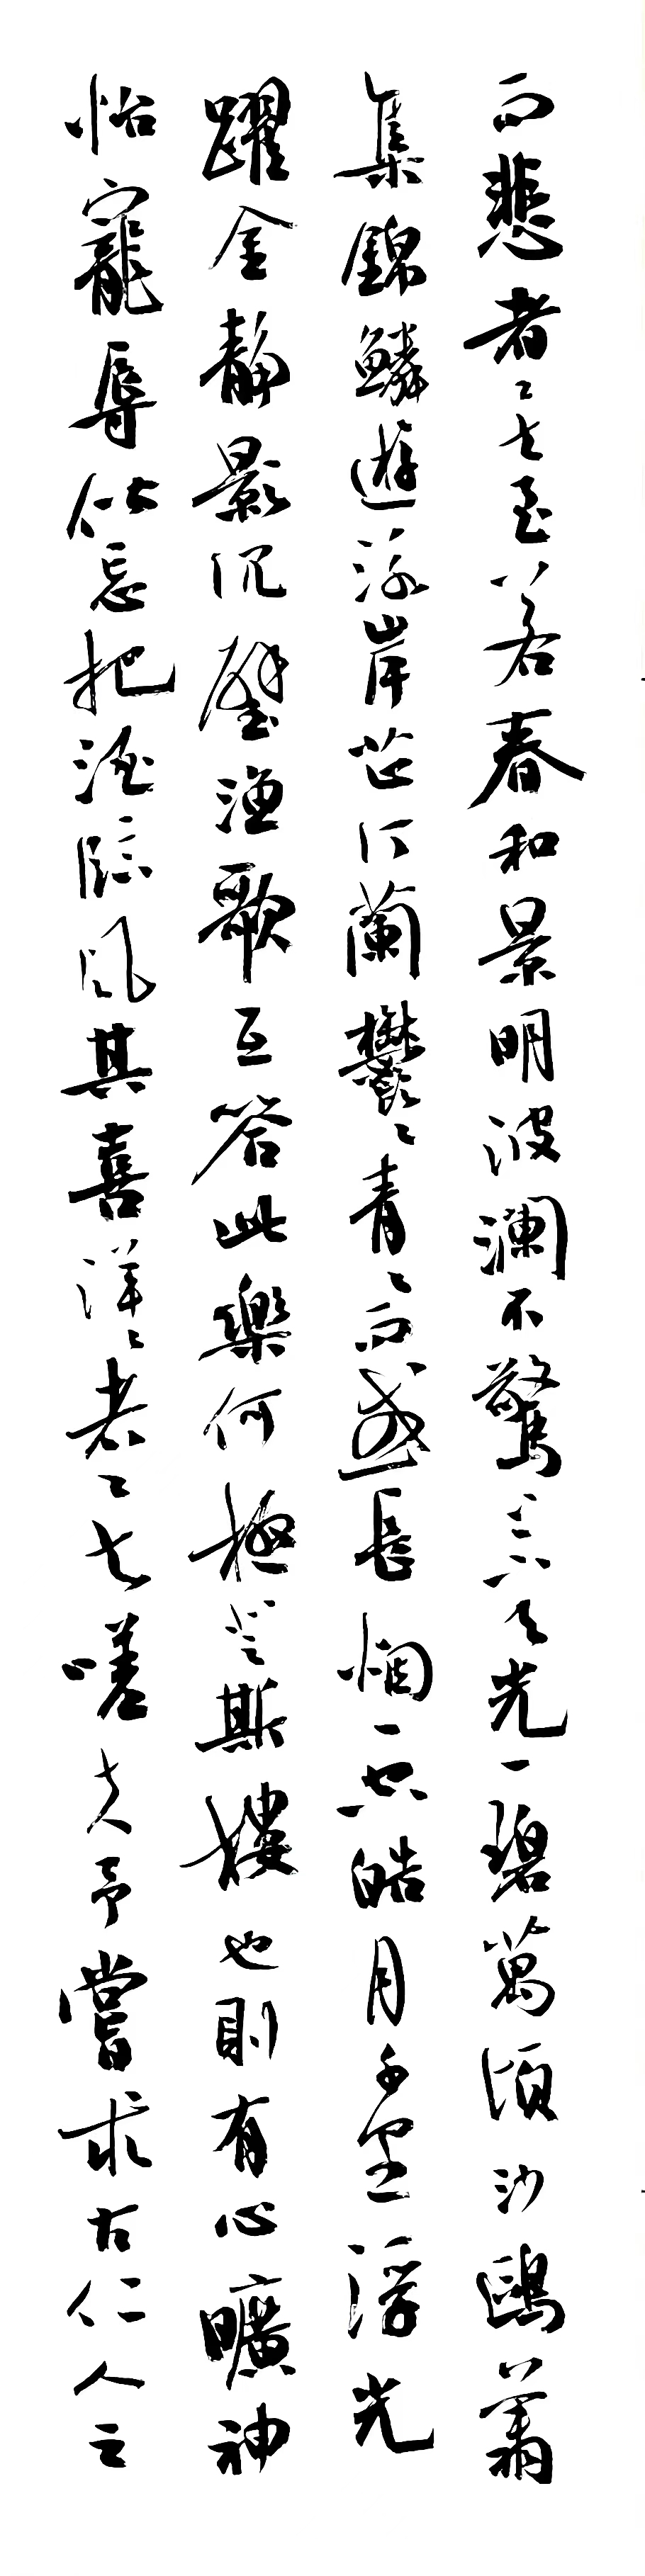 而悲者矣至若春和景明波瀾不驚上下天光一碧萬頃沙鷗翔
集錦鱗遊泳岸芷汀蘭鬱々青々而或長烟一空皓月千里浮光
躍金靜影沉璧漁歌互答此樂何極登斯樓也則有心曠神
怡寵辱偕忘把酒臨風其喜洋々者矣嗟夫予嘗求古仁人之